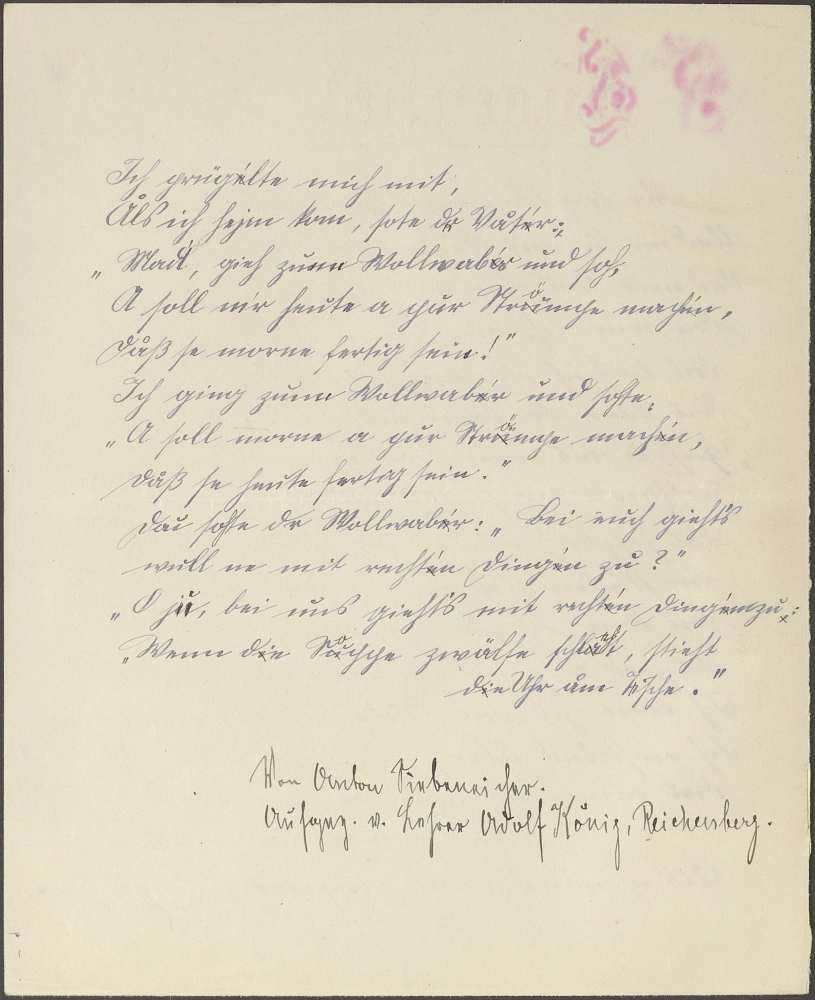 Ich prügelte mich mit,
Als ich hejm kom, sote dr Vater:
„Madl, gieh zumm Wollwaber und soh,
A soll mr heute a pur Strömpe machen,
Dåß se morne fertig sein!"
Ich ging zumm Wollwaber und sohte,
„A soll morne a pur Strömpe machen,
Dåß se heute fertig sein."
Dau sohte dr Wollwaber: „Bei euch gieht's
wull ne mit rechten Dingen zu?"
„O ju, bei uns gieht's mit rechten Dingen zu:
„Wenn die Soppe zwälfe schlecht, stieht
die Uhr am Tesche."
Von Anton Siebeneicher.
Aufgez. v. Lehrer Adolf König, Reichenberg.